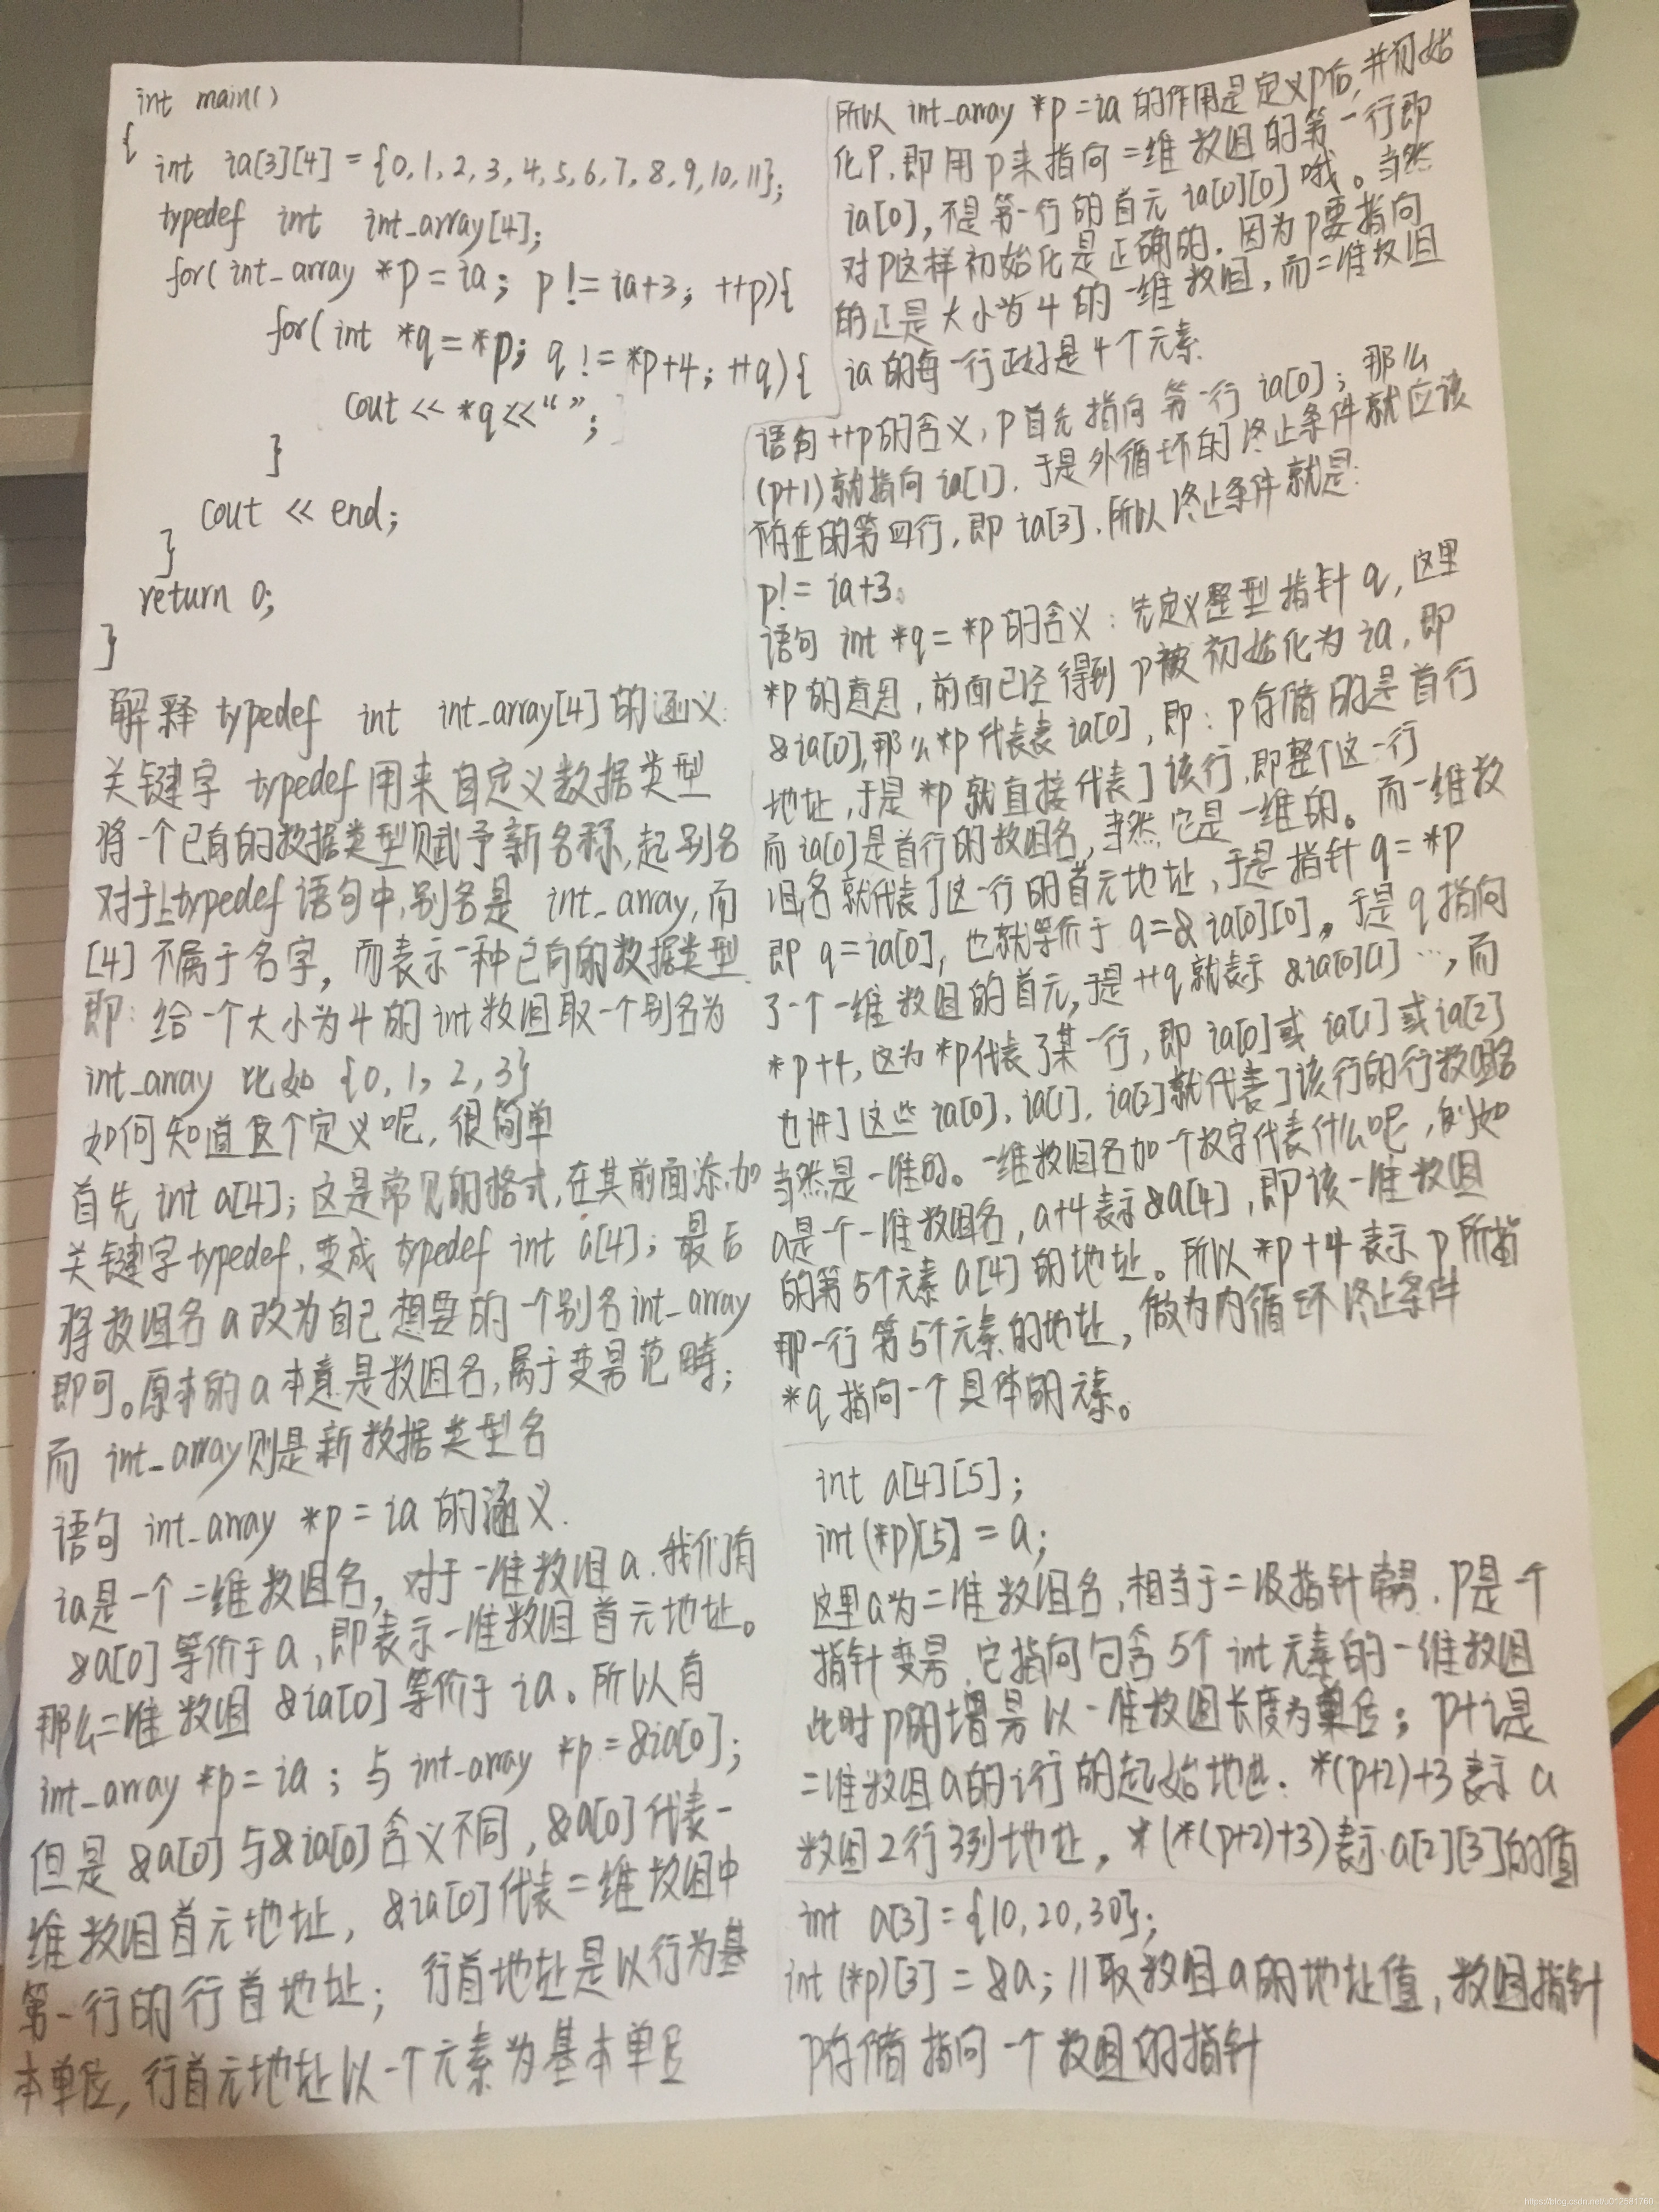 int main()
{
int ia[3][4] = {0,1,2,3,4,5,6,7,8,9,10,11};
typedef int int_array[4];
for( int_array *p = ia; p != ia+3; ++p){
for( int *q = *p; q != *p+4; ++q){
cout << *q << “ ”;
}
cout << end;
}
return 0;
}
解释 typedef int int_array[4] 的涵义:
关键字 typedef 用来自定义数据类型
将一个已有的数据类型赋予新名称,起别名
对于上typedef 语句中,别名是 int_array,而
[4] 不属于名字，而表示一种已有的数据类型
即: 给一个大小为4的int数组取一个别名为
int_array 比如 {0,1,2,3}
如何知道这个定义呢,很简单
首先 int a[4]; 这是常见的格式,在其前面添加
关键字typedef,变成 typedef int a[4]; 最后
将数组名 a 改为自己想要的一个别名int_array
即可。原本的 a 本意是数组名,属于变量范畴;
而 int_array则是新数据类型名
语句 int_array *p = ia 的涵义.
ia是一个二维数组名，对于一维数组a.我们有
&a[0] 等价于 a,即表示一维数组首元地址。
那么二维数组 &ia[0] 等价于 ia。所以有
int_array *p = ia ; 与 int_array *p = &ia[0];
但是 &a[0] 与&ia[0] 含义不同,&a[0] 代表一
维数组首元地址,&ia[0]代表二维数组中
第一行的行首地址; 行首地址是以行为基
本单位,行首元地址以一个元素为基本单位
所以 int_array *p = ia 的作用是定义p后,并初始
化P.即用p来指向二维数组的第一行即
ia[0],不是第一行的首元 ia[0][0] 哦。当然
对P这样初始化是正确的.因为P要指向
的正是大小为4的一维数组,而二维数组
ia 的每一行正好是4个元素.
语句 ++p的含义,P首先指向第一行 ia[0]; 那么
(p+1)就指向 ia[1].于是外循环的终止条件就应该
不存在的第四行,即 ia[3].所以终止条件就是:
p!= ia+3。
语句 int *q = *p 的含义: 先定义整型指针q,这里
*p 的 前面已经得到 p被初始化为ia,即
&ia[0],那么*p代表表 ia[0],即: p存储的是首行
地址,于是*p就直接代表了该行,即整个这一行
而ia[0]是首行的数组名,当然它是一维的。而一维数
组名就代表了这一行的首元地址,于是指针 q = *p
即 q = ia[0],也就等价于 q=& ia[0][0]。于是q指向
了一个一维数组的首元,于是++q就表示 &ia[0][1] …,而
*p+4,这为*p代表了某一行,即 ia[0]或 ia[1]或ia[2]
也讲了这些 ia[0],ia[1],ia[2]就代表了该行的行数组名
当然是一维的。一维数组名加一个数字代表什么呢,例如
a是一个一维数组名,a+4表示&a[4],即该一维数组
的第5个元素a[4]的地址。所以*p+4表示p所指
那一行第5个元素的地址,做为内循环终止条件
*q 指向一个具体的元素。
int a[4][5];
int (*p)[5] = a;
这里a为二维数组名,相当于二级指针常量.P是一个
指针变量.它指向包含5个int元素的一维数组
此时p的增量以一维数组长度为单位; p+i是
二维数组a的i行的起始地址. *(p+2)+3表示 a
数组2行3列地址, *(*(p+2)+3)表示a[2][3]的值
int a[3] = {10,20,30};
int (*p)[3] = &a; //取数组a的地址值,数组指针
p存储指向一个数组的指针
https://blog.csdn.net/u012581760